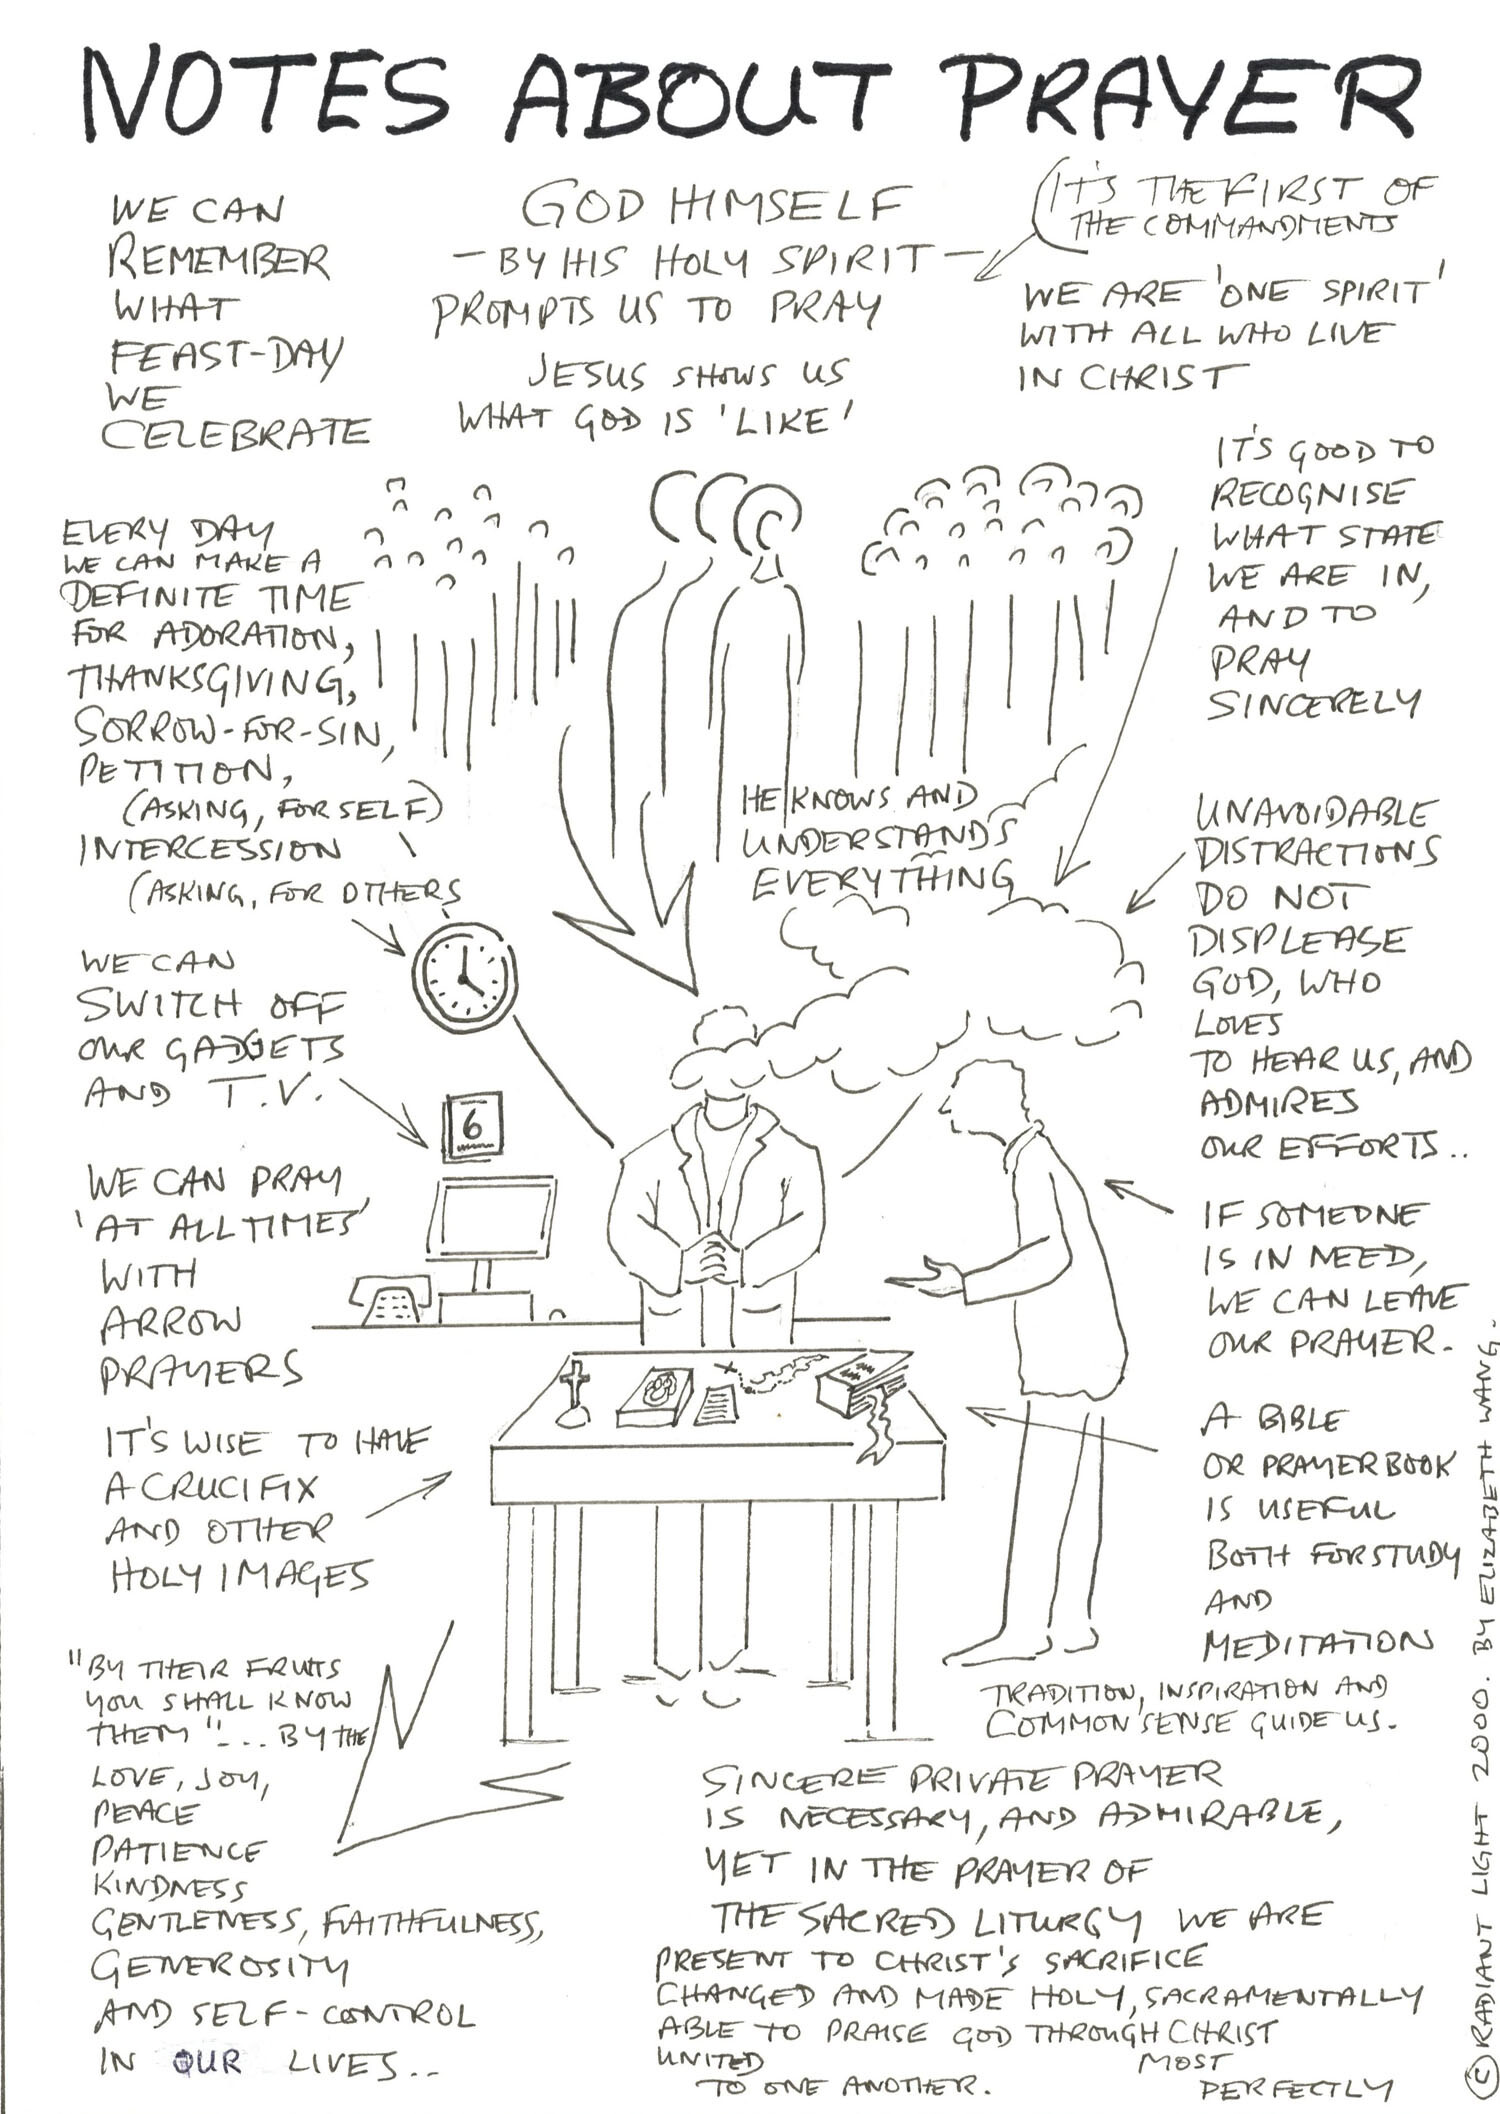 NOTES ABOUT PRAYER
WE CAN
REMEMBER
WHAT
FEAST-DAY
WE
CELEBRATE
GOD HIMSELF
- BY HIS HOLY SPIRIT -
PROMPTS US TO PRAY
JESUS SHOWS US
WHAT GOD IS 'LIKE'
(IT'S THE FIRST OF
THE COMMANDMENTS
WE ARE 'ONE SPIRIT'
WITH ALL WHO LIVE
IN CHRIST
IT'S GOOD TO
RECOGNISE
WHAT STATE
WE ARE IN,
AND TO
PRAY
SINCERELY
EVERY DAY
WE CAN MAKE A
DEFINITE TIME
FOR ADORATION,
THANKSGIVING,
SORROW-FOR-SIN,
PETITION,
(ASKING, FOR SELF)
INTERCESSION
(ASKING, FOR OTHERS
HE KNOWS AND
UNDERSTANDS
EVERYTHING
UNAVOIDABLE
DISTRACTIONS
DO NOT
DISPLEASE
GOD, WHO
LOVES
TO HEAR US, AND
ADMIRES
OUR EFFORTS..
WE CAN
SWITCH OFF
OUR GADGETS
AND T.V.
6
WE CAN PRAY
'AT ALL TIMES'
WITH
ARROW
PRAYERS
IF SOMEONE
IS IN NEED,
WE CAN LEAVE
OUR PRAYER.
IT'S WISE TO HAVE
A CRUCIFIX
AND OTHER
HOLY IMAGES
A BIBLE
OR PRAYER BOOK
IS USEFUL
BOTH FOR STUDY
AND
MEDITATION
TRADITION, INSPIRATION AND
COMMON SENSE GUIDE US.
"BY THEIR FRUITS
YOU SHALL KNOW
THEM"... BY THE
LOVE, JOY,
PEACE
PATIENCE
KINDNESS
GENTLENESS, FAITHFULNESS,
GENEROSITY
AND SELF-CONTROL
IN OUR LIVES..
SINCERE PRIVATE PRAYER
IS NECESSARY, AND ADMIRABLE,
YET IN THE PRAYER OF
THE SACRED LITURGY WE ARE
PRESENT TO CHRIST'S SACRIFICE
CHANGED AND MADE HOLY, SACRAMENTALLY
ABLE TO PRAISE GOD THROUGH CHRIST
UNITED MOST
TO ONE ANOTHER. PERFECTLY
© RADIANT LIGHT 2000. BY ELIZABETH WANG.